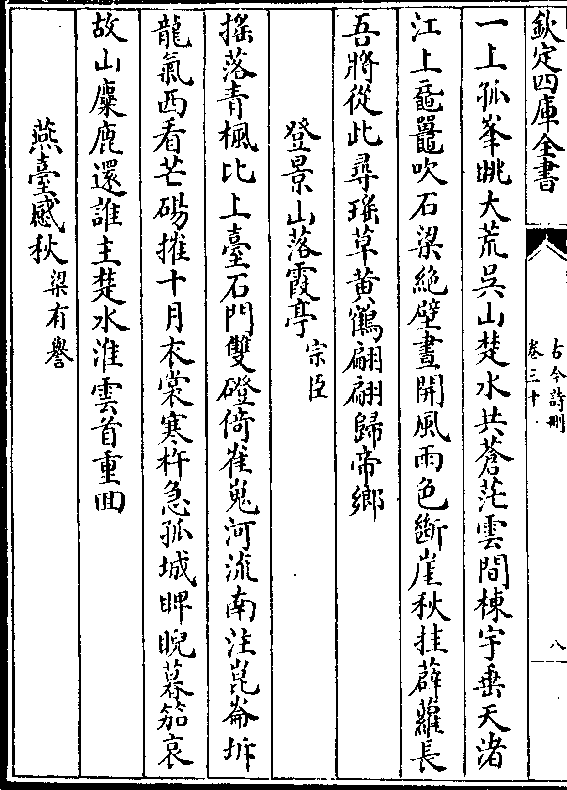 欽定四庫全書
古今詩刪
卷三十
八
一上孤峯眺大荒吳山楚水共蒼茫雲間棟宇垂天渚
江上黿鼉吹石梁絶壁晝開風雨色斷崖秋挂薜蘿長
吾將從此尋瑶草黄鶴翩翩歸帝鄉
登景山落霞亭 宗臣
摇落青楓比上臺石門雙磴倚崔嵬河流南注崑崙坼
龍氣西看芒碭摧十月衣裳寒杵急孤城睥睨暮笳哀
故山麋鹿還誰主楚水淮雲首重回
燕臺感秋 梁有譽